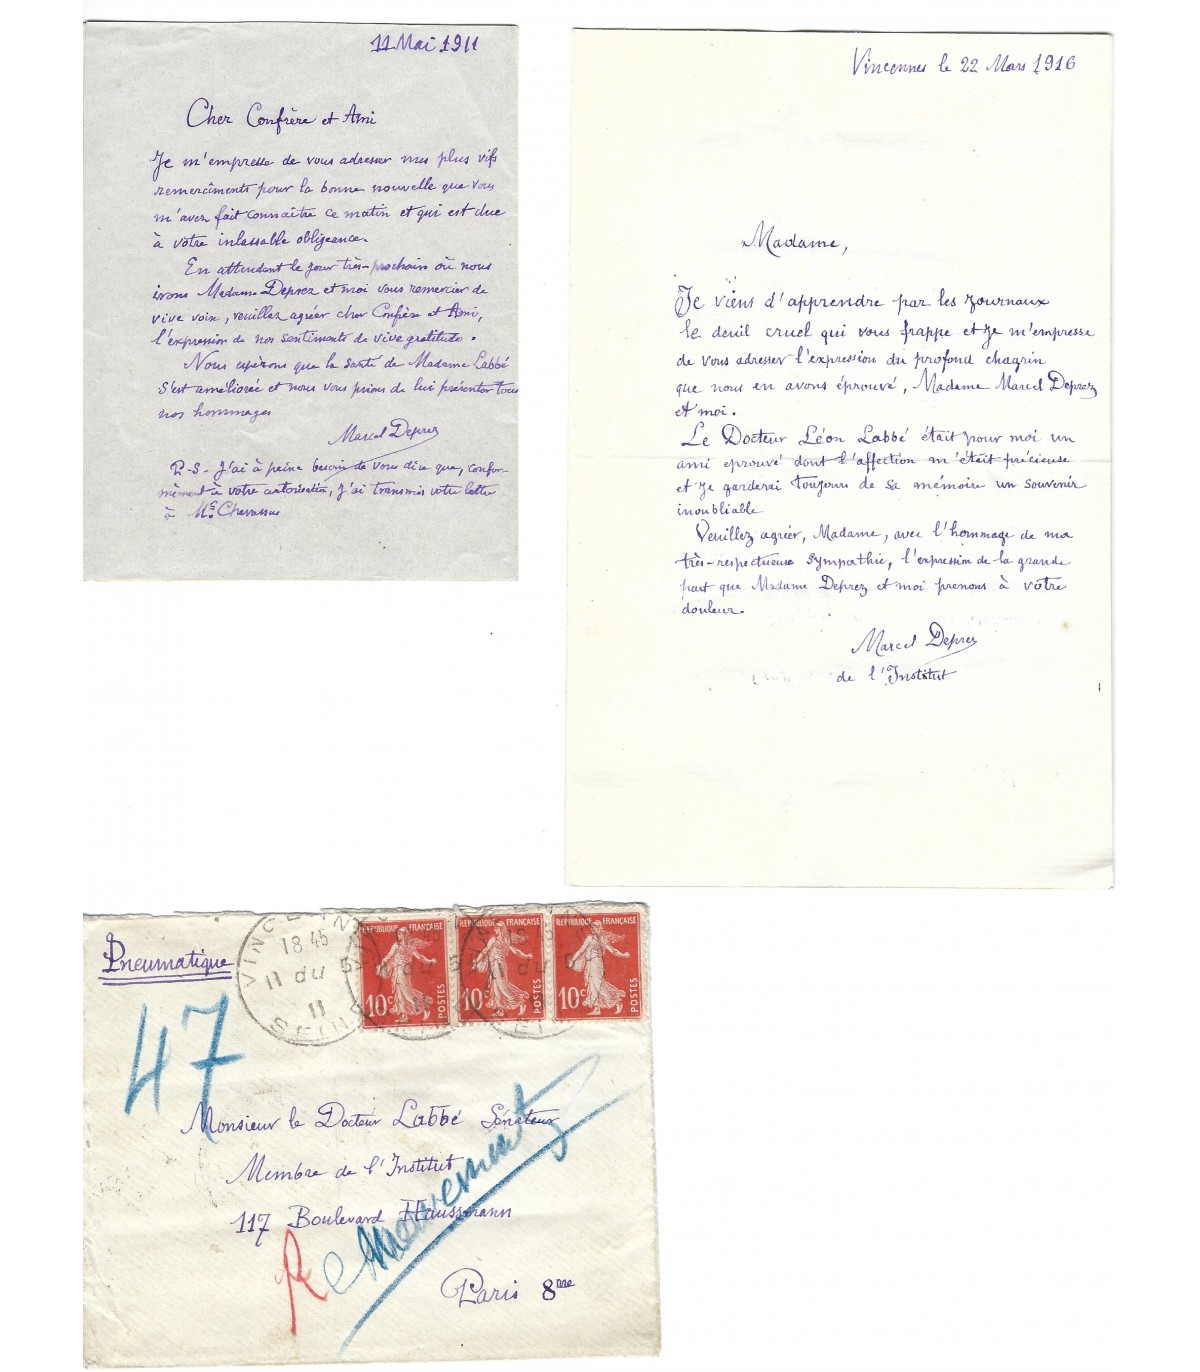 11 Mai 1911
Cher Confrère et Ami
Je m'empresse de vous adresser mes plus vifs
remerciments pour la bonne nouvelle que vous
m'avez fait connaître ce matin et qui est due
à votre inlassable obligeance.
En attendant le jour très-prochain où nous
irons Madame Deprez et moi vous remercier de
vive voix, veuillez agréer cher Confère et Ami,
l'expression de nos sentiments de vive gratitude.
Nous espérons que la santé de Madame Labbé
s'est améliorée et nous vous prions de lui présenter tous
nos hommages
Marcel Deprez
P-S- J'ai à peine besoin de vous dire que, confor-
mément à votre autorisation, j'ai transmis votre lettre
à Me Chavassus
Vincennes le 22 Mars 1916
Madame,
Je viens d'apprendre par les journaux
le deuil cruel qui vous frappe et je m'empresse
de vous adresser l'expression du profond chagrin
que nous en avons éprouvé, Madame Marcel Deprez
et moi.
Le Docteur Léon Labbé était pour moi un
ami eprouvé dont l'affection m'était précieuse
et je garderai toujours de sa mémoire un souvenir
inoubliable
Veuillez agréer, Madame, avec l'hommage de ma
très-respectueuse sympathie, l'expression de la grande
part que Madame Deprez et moi prenons à votre
douleur.
Marcel Deprez
de l'Institut
Pneumatique
VINCENNES
18 45
11 du 5
11
SEINE
RÉPUBLIQUE FRANÇAISE
10c
POSTES
RÉPUBLIQUE FRANÇAISE
10c
POSTES
RÉPUBLIQUE FRANÇAISE
10c
POSTES
47
Monsieur le Docteur Labbé Sénateur
Membre de l'Institut
117 Boulevard Haussmann
Paris 8me